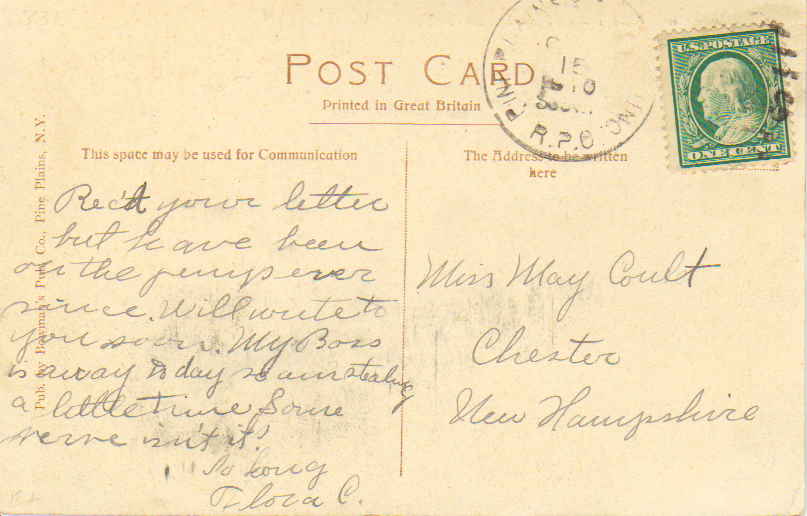 POST CARD
Printed in Great Britain
R.P.O.
U.S. POSTAGE
ONE CENT
This space may be used for Communication
The Address to be written
here
Pub. by Bowman's Pub. Co., Pine Plains, N.Y.
Rec'd your letter
but have been
on the jump ever
since. Will write to
you soon. My Boss
is away today so am stealing
a little time Some
nerve isn't it!
So long
Flora C.
Miss May Coult
Chester
New Hampshire